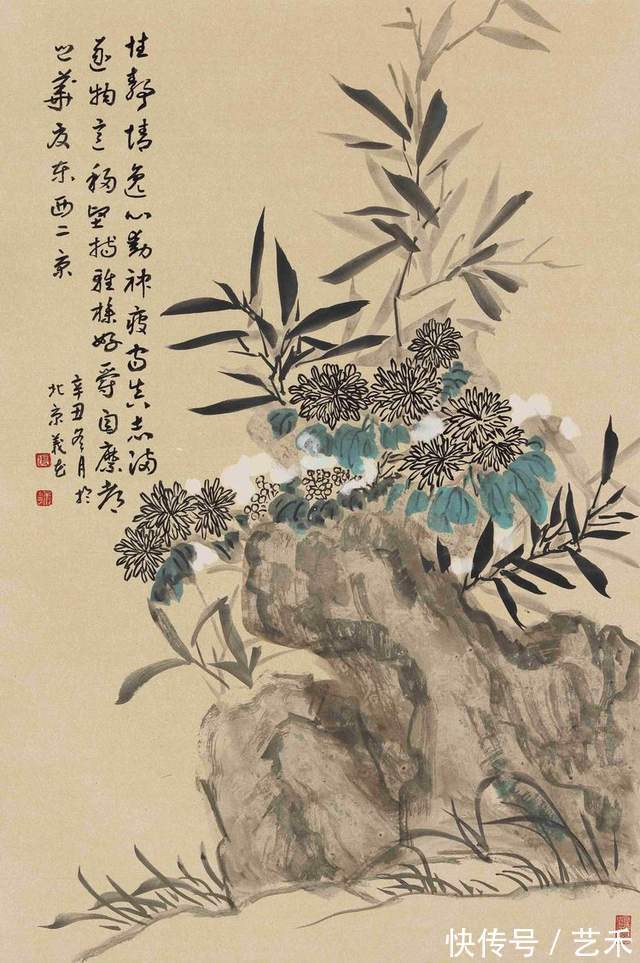 性静情逸心動神疲守真志满
逐物意移堅持雅操好爵自縻都
邑華夏东西二京
辛丑冬月於
北京
快传号 / 艺禾